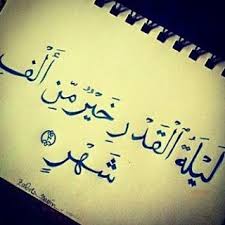 لَيْلَةُ ٱلْقَدْرِ خَيْرٌ مِّنْ أَلْفِ
شَهْرٍ